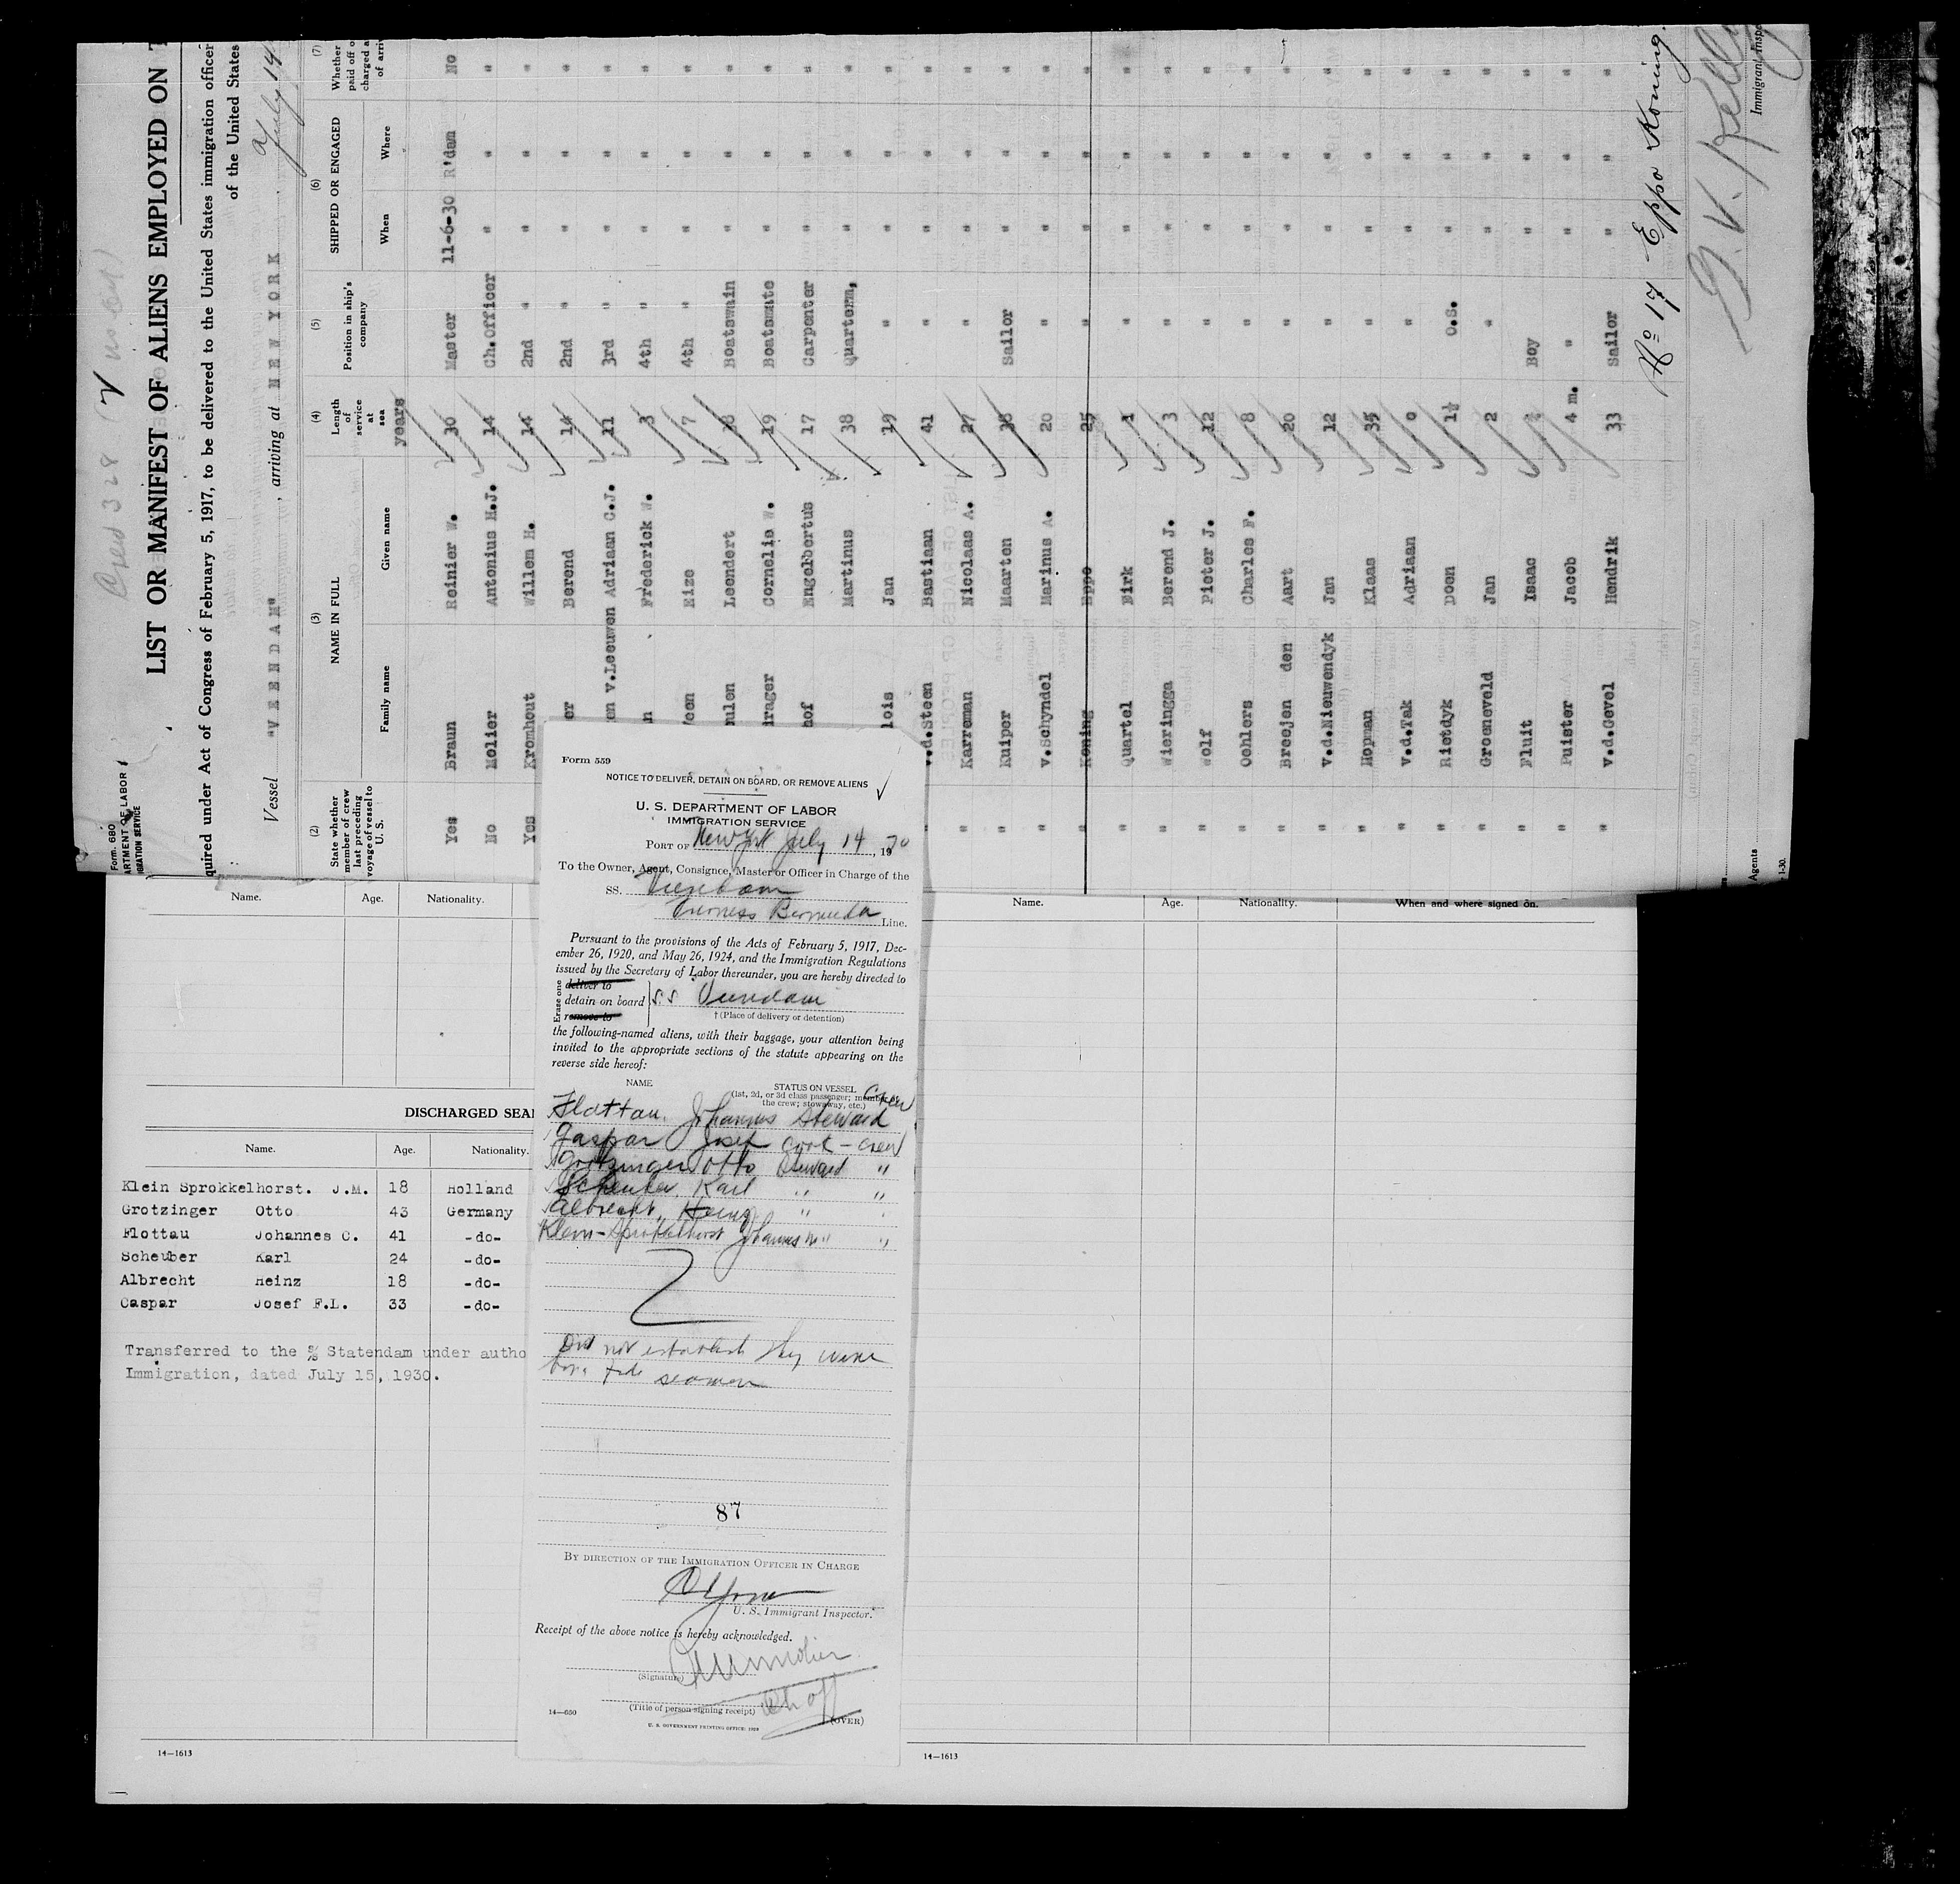 Form 680
ARTMENT OF LABOR
IGRATION SERVICE
LIST OR MANIFEST OF ALIENS EMPLOYED ON T
quired under Act of Congress of February 5, 1917, to be delivered to the United States immigration officer
of the United States
Vessel "VEENDAM", arriving at NEW YORK July 14
(2) (3) (4) (5) (6) (7)
State whether member of crew last preceding voyage of vessel to U. S.
NAME IN FULL
Family name Given name
Length of service at sea
years
Position in ship's company
SHIPPED OR ENGAGED
When Where
Whether paid off o
charged a
of arriv
Yes Braun Reinier W. 30 Master 11-6-30 R'dam No
No Molier Antonius H.J. 14 Ch.Officer " " "
Yes Kromhout Willem H. 14 2nd " " " "
er Berend 14 2nd " " " "
en v.Leeuwen Adriaan C.J. 11 3rd " " " "
n Frederick W. 3 4th " " " "
een Eize 7 4th " " " "
ulen Leendert 18 Boatswain " " "
rager Cornelis W. 19 Boatsmate " " "
hof Engelbertus 17 Carpenter " " "
lois Martinus 38 Quarterm, " " "
Jan 19 " " " "
" v.d.Steen Bastiaan 41 " " " "
" Karreman Nicolaas A. 27 " " " "
" Kuiper Maarten 38 Sailor " " "
" v.Schyndel Marinus A. 20 " " " "
" Koning Eppo 25 " " " "
" Quartel Dirk 1 " " " "
" Wieringga Berend J. 3 " " " "
" Wolf Pieter J. 12 " " " "
" Oehlers Charles F. 8 " " " "
" Breejen den Aart 20 " " " "
" v.d.Nieuwendyk Jan 12 " " " "
" Hopman Klaas 35 " " " "
" v.d.Tak Adriaan 0 " " " "
" Rietdyk Doen 1½ O.S. " " "
" Groeneveld Jan 2 " " " "
" Fluit Isaac Boy " " "
" Puister Jacob 4 m. " " " "
" v.d.Gevel Hendrik 33 Sailor " " "
No 17 - Eppo Koning.
Immigrant Inspe
Agents
1-30.
Form 559
NOTICE TO DELIVER, DETAIN ON BOARD, OR REMOVE ALIENS
U. S. DEPARTMENT OF LABOR
IMMIGRATION SERVICE
PORT OF New York July 14, 1930
To the Owner, Agent, Consignee, Master or Officer in Charge of the
SS. Veendam
Furness Bermuda Line.
Pursuant to the provisions of the Acts of February 5, 1917, Dec-
ember 26, 1920, and May 26, 1924, and the Immigration Regulations
issued by the Secretary of Labor thereunder, you are hereby directed to
Erase one
deliver to
detain on board S.S. Veendam
remove to
† (Place of delivery or detention)
the following-named aliens, with their baggage, your attention being
invited to the appropriate sections of the statute appearing on the
reverse side hereof:
NAME STATUS ON VESSEL
(1st, 2d, or 3d class passenger; member of
the crew; stowaway, etc.)
Crew
Flottau, Johannes Steward
Gaspar Josef Cook - Crew
Grotzinger Otto Steward "
Scheuber, Karl " "
Albrecht, Heinz " "
Klein-Sprokkelhorst Johannes M " "
Did not establish they were
bona fide seamen
87
BY DIRECTION OF THE IMMIGRATION OFFICER IN CHARGE
U. S. Immigrant Inspector.
Receipt of the above notice is hereby acknowledged.
(Signature)
Ch off
(Title of person signing receipt)
14—650
U. S. GOVERNMENT PRINTING OFFICE: 1929
(OVER)
Name. Age. Nationality.
DISCHARGED SEA
Name. Age. Nationality.
Klein Sprokkelhorst. J.M. 18 Holland
Grotzinger Otto 43 Germany
Flottau Johannes C. 41 -do-
Scheuber Karl 24 -do-
Albrecht Heinz 18 -do-
Caspar Josef F.L. 33 -do-
Transferred to the S/S Statendam under autho
Immigration, dated July 15, 1930.
14—1613
Name. Age. Nationality. When and where signed on.
14—1613